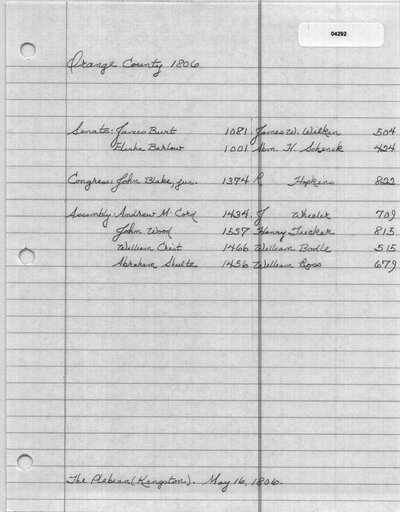 04292
Orange County 1806
Senate: James Burt 1081 James W. Wilkin 504
Elisha Barlow 1001 Abm. H. Schenck 424
Congress: John Blake, Jun. 1374 R Hopkins 822
Assembly: Andrew McCord 1434 J Wheeler 709
John Wood 1557 Henry Tucker 815
William Crist 1466 William Bodle 515
Abraham Shultz 1456 William Ross 679
The Plebian (Kingston). May 16, 1806.